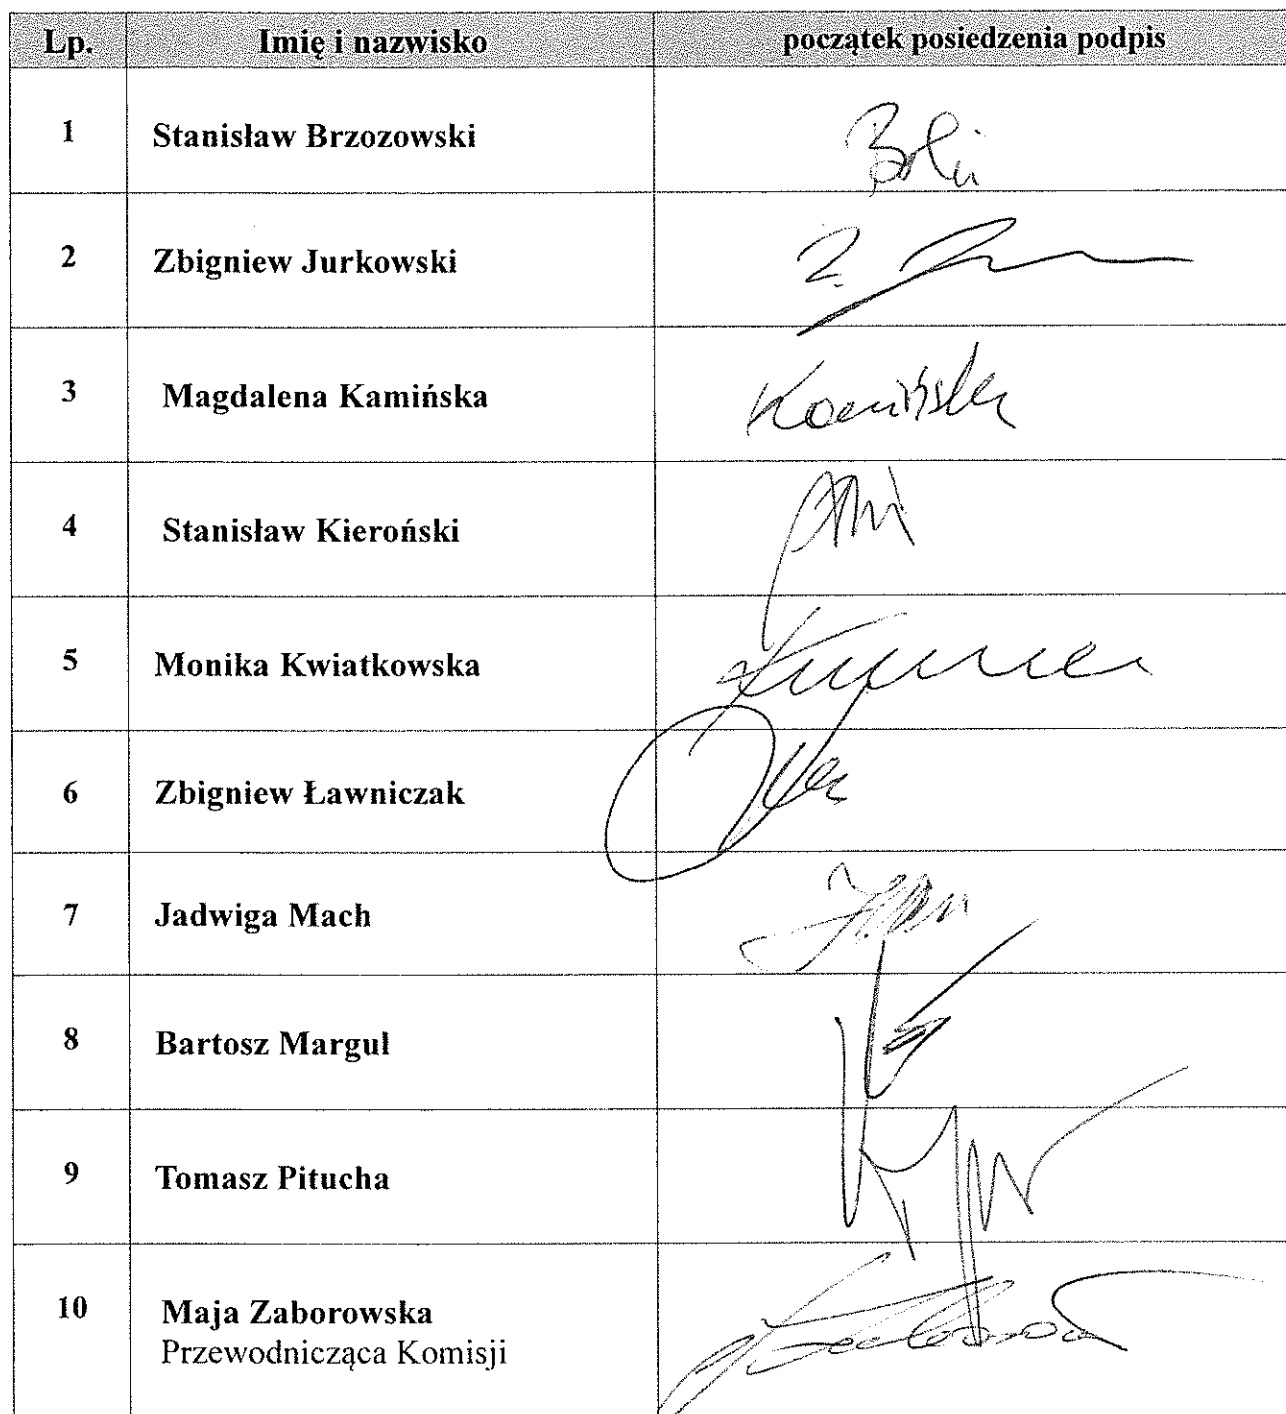 Lp. Imię i nazwisko początek posiedzenia podpis
1 Stanisław Brzozowski
2 Zbigniew Jurkowski
3 Magdalena Kamińska Kamińska
4 Stanisław Kieroński
5 Monika Kwiatkowska
6 Zbigniew Ławniczak
7 Jadwiga Mach
8 Bartosz Margul
9 Tomasz Pitucha
10 Maja Zaborowska
Przewodnicząca Komisji